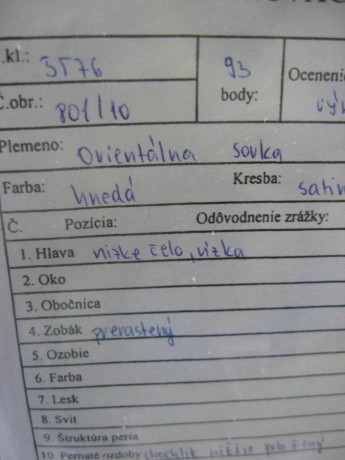 .kl.: 3T76
93 body:
Ocenenie
Č.obr.: 801/10
Plemeno: Orientálna sovka
Farba: hnedá Kresba: satin
Č. Pozícia: Odôvodnenie zrážky:
1. Hlava nízke čelo, úzka
2. Oko
3. Obočnica
4. Zobák prerastený
5. Ozobie
6. Farba
7. Lesk
8. Svit
9. Štruktúra peria
10. Pernaté ozdoby chochlík nižšie